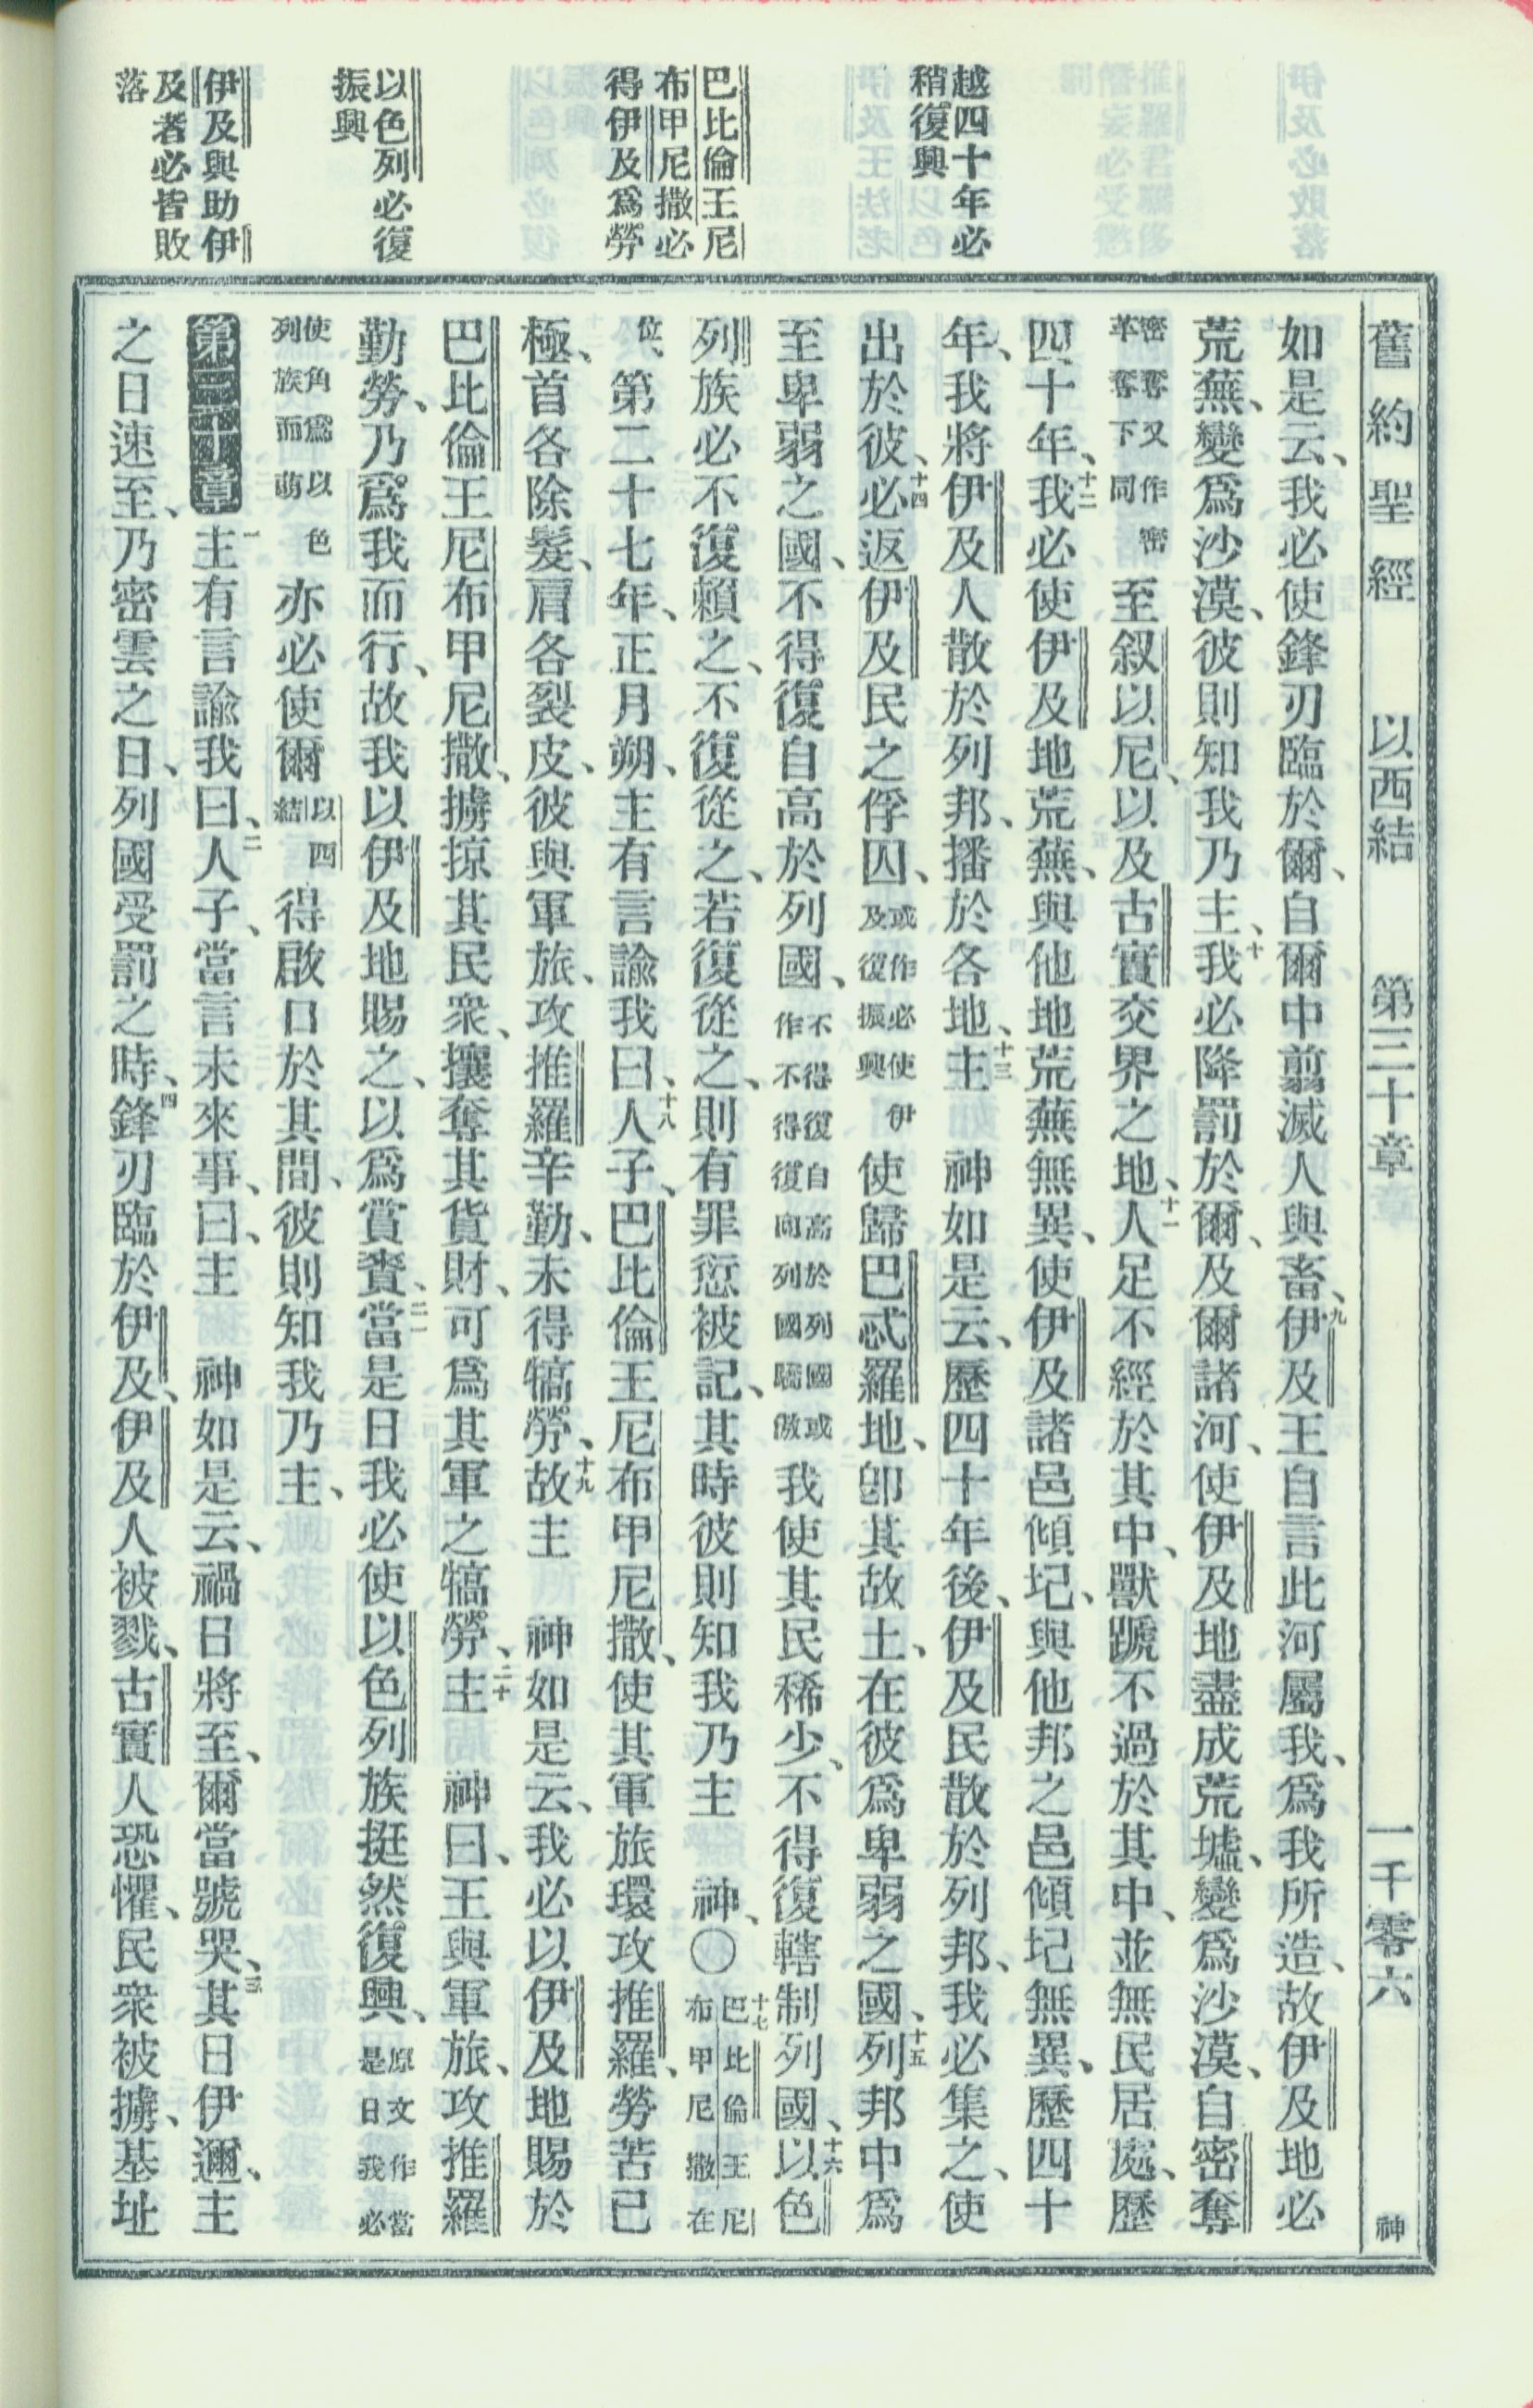 舊約聖經 以西結 第三十章 一千零六 神
越四十年必
稍復興
巴比倫王尼
布甲尼撒必
得伊及爲勞
以色列必復
振興
伊及與助伊
及者必皆敗
落
如是云、我必使鋒刃臨於爾、自爾中翦滅人與畜、九伊及王自言此河屬我、爲我所造、故伊及地必
荒蕪、變爲沙漠、彼則知我乃主、十我必降罰於爾、及爾諸河、使伊及地盡成荒墟、變爲沙漠、自密奪
密奪又作密革奪下同至叙以尼、以及古實交界之地、十一人足不經於其中、獸蹏不過於其中、並無民居處、歷
四十年、十二我必使伊及地荒蕪、與他地荒蕪無異、使伊及諸邑傾圮、與他邦之邑傾圮無異、歷四十
年、我將伊及人散於列邦、播於各地、十三主 神如是云、歷四十年後、伊及民散於列邦、我必集之、使
出於彼、十四必返伊及民之俘囚、或作必使伊及復振興使歸巴忒羅地、卽其故土、在彼爲卑弱之國、十五列邦中爲
至卑弱之國、不得復自高於列國、不得復自高於列國或作不得復向列國驕傲我使其民稀少、不得復轄制列國、十六以色
列族必不復賴之、不復從之、若復從之、則有罪愆被記、其時彼則知我乃主 神、〇十七巴比倫王尼布甲尼撒在
位、第二十七年、正月朔、主有言諭我曰、十八人子、巴比倫王尼布甲尼撒、使其軍旅環攻推羅、勞苦已
極、首各除髮、肩各裂皮、彼與軍旅、攻推羅辛勤、未得犒勞、十九故主 神如是云、我必以伊及地賜於
巴比倫王尼布甲尼撒、擄掠其民衆、攘奪其貨財、可爲其軍之犒勞、二十主 神曰、王與軍旅、攻推羅
勤勞、乃爲我而行、故我以伊及地賜之、以爲賞賚、二一當是日我必使以色列族挺然復興、原文作當是日我必
使角爲以色列族而萌亦必使爾以西結得啟口於其間、彼則知我乃主、
第三十章 一主有言諭我曰、二人子、當言未來事、曰、主 神如是云、禍日將至、爾當號哭、三其日伊邇、主
之日速至、乃密雲之日、列國受罰之時、四鋒刃臨於伊及、伊及人被戮、古實人恐懼、民衆被擄、基址